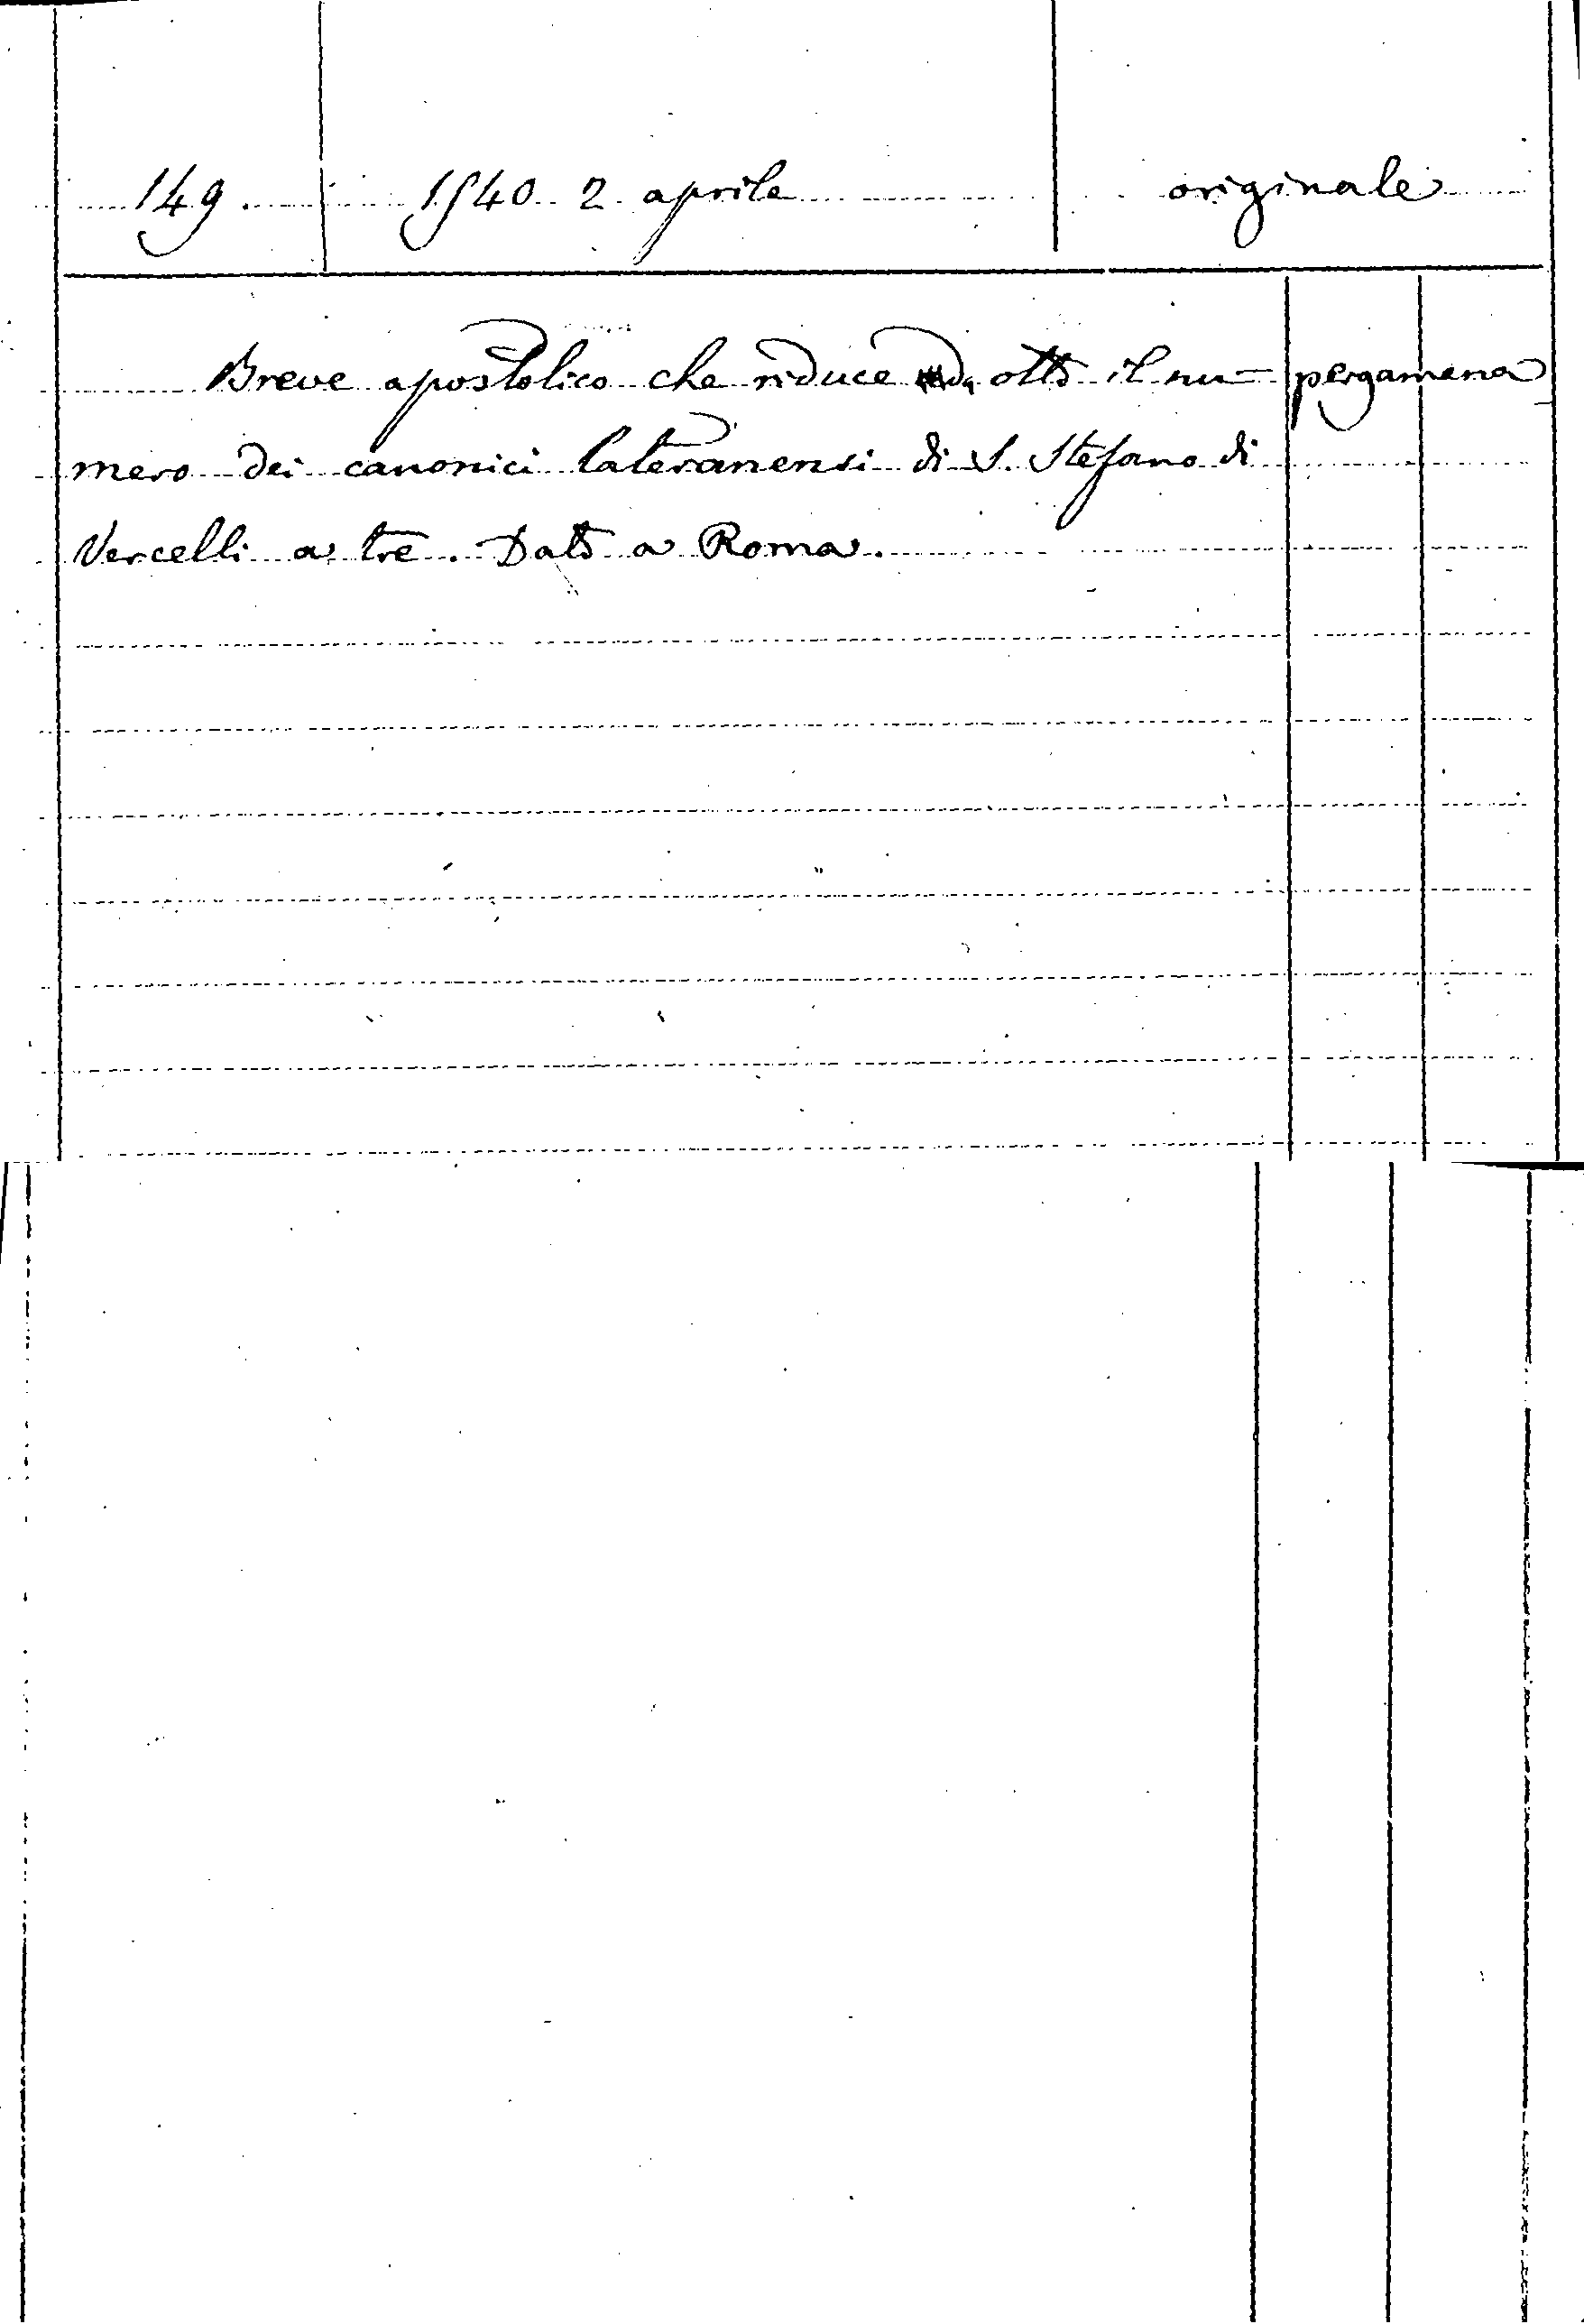 149. 1540 2 aprile originale
Breve apostolico che riduce da otto il nu- pergamena
mero dei canonici lateranensi di S. Stefano di
Vercelli a tre. Dato a Roma.